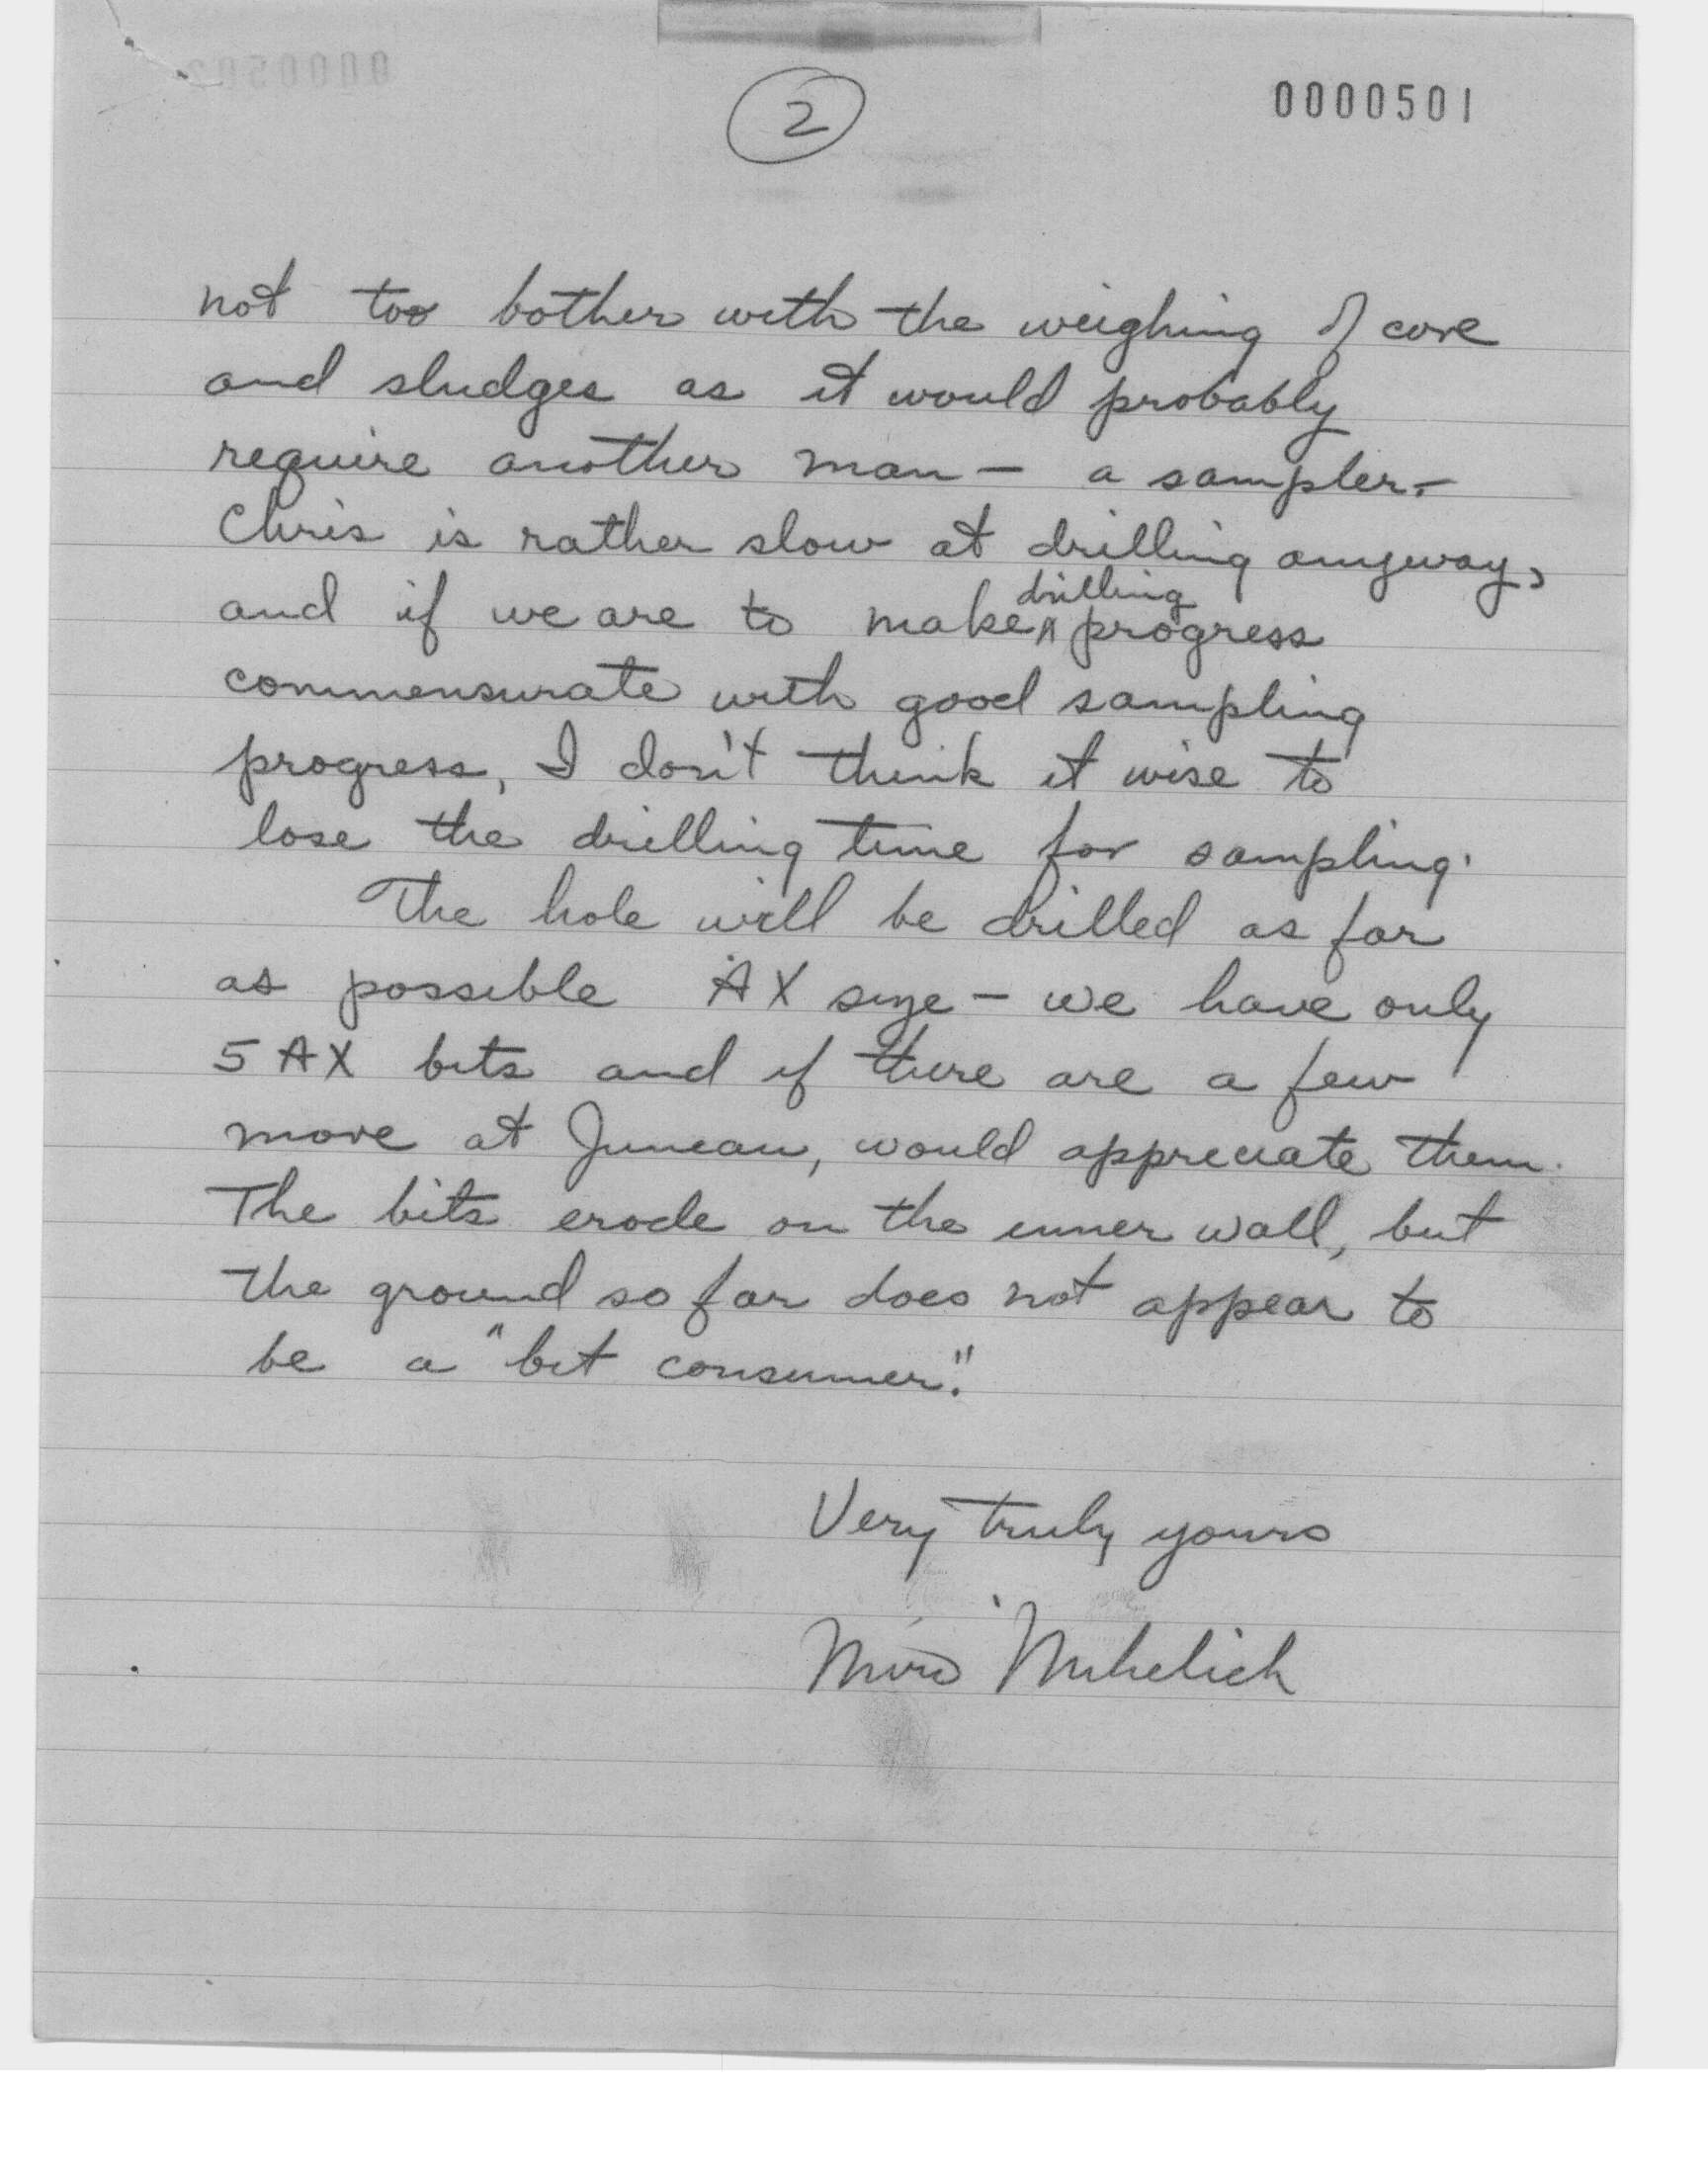 2
0000501
not too bother with the weighing of core
and sludges as it would probably
require another man — a sampler. —
Chris is rather slow at drilling anyway,
drilling
and if we are to make progress
commensurate with good sampling
progress, I don't think it wise to
lose the drilling time for sampling.
The hole will be drilled as far
as possible AX size — we have only
5 AX bits and if there are a few
more at Juneau, would appreciate them.
The bits erode on the inner wall, but
the ground so far does not appear to
be a "bit consumer."
Very truly yours
Miro Mihelich